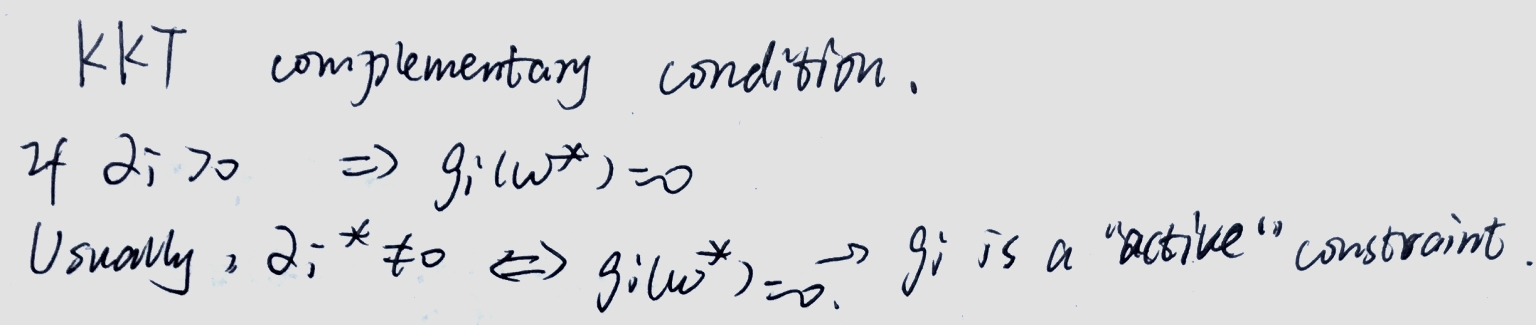 KKT complementary condition.
If αi >0 => gi(w*)=0
Usually, αi* ≠0 <=> gi(w*)=0. → gi is a "active" constraint.